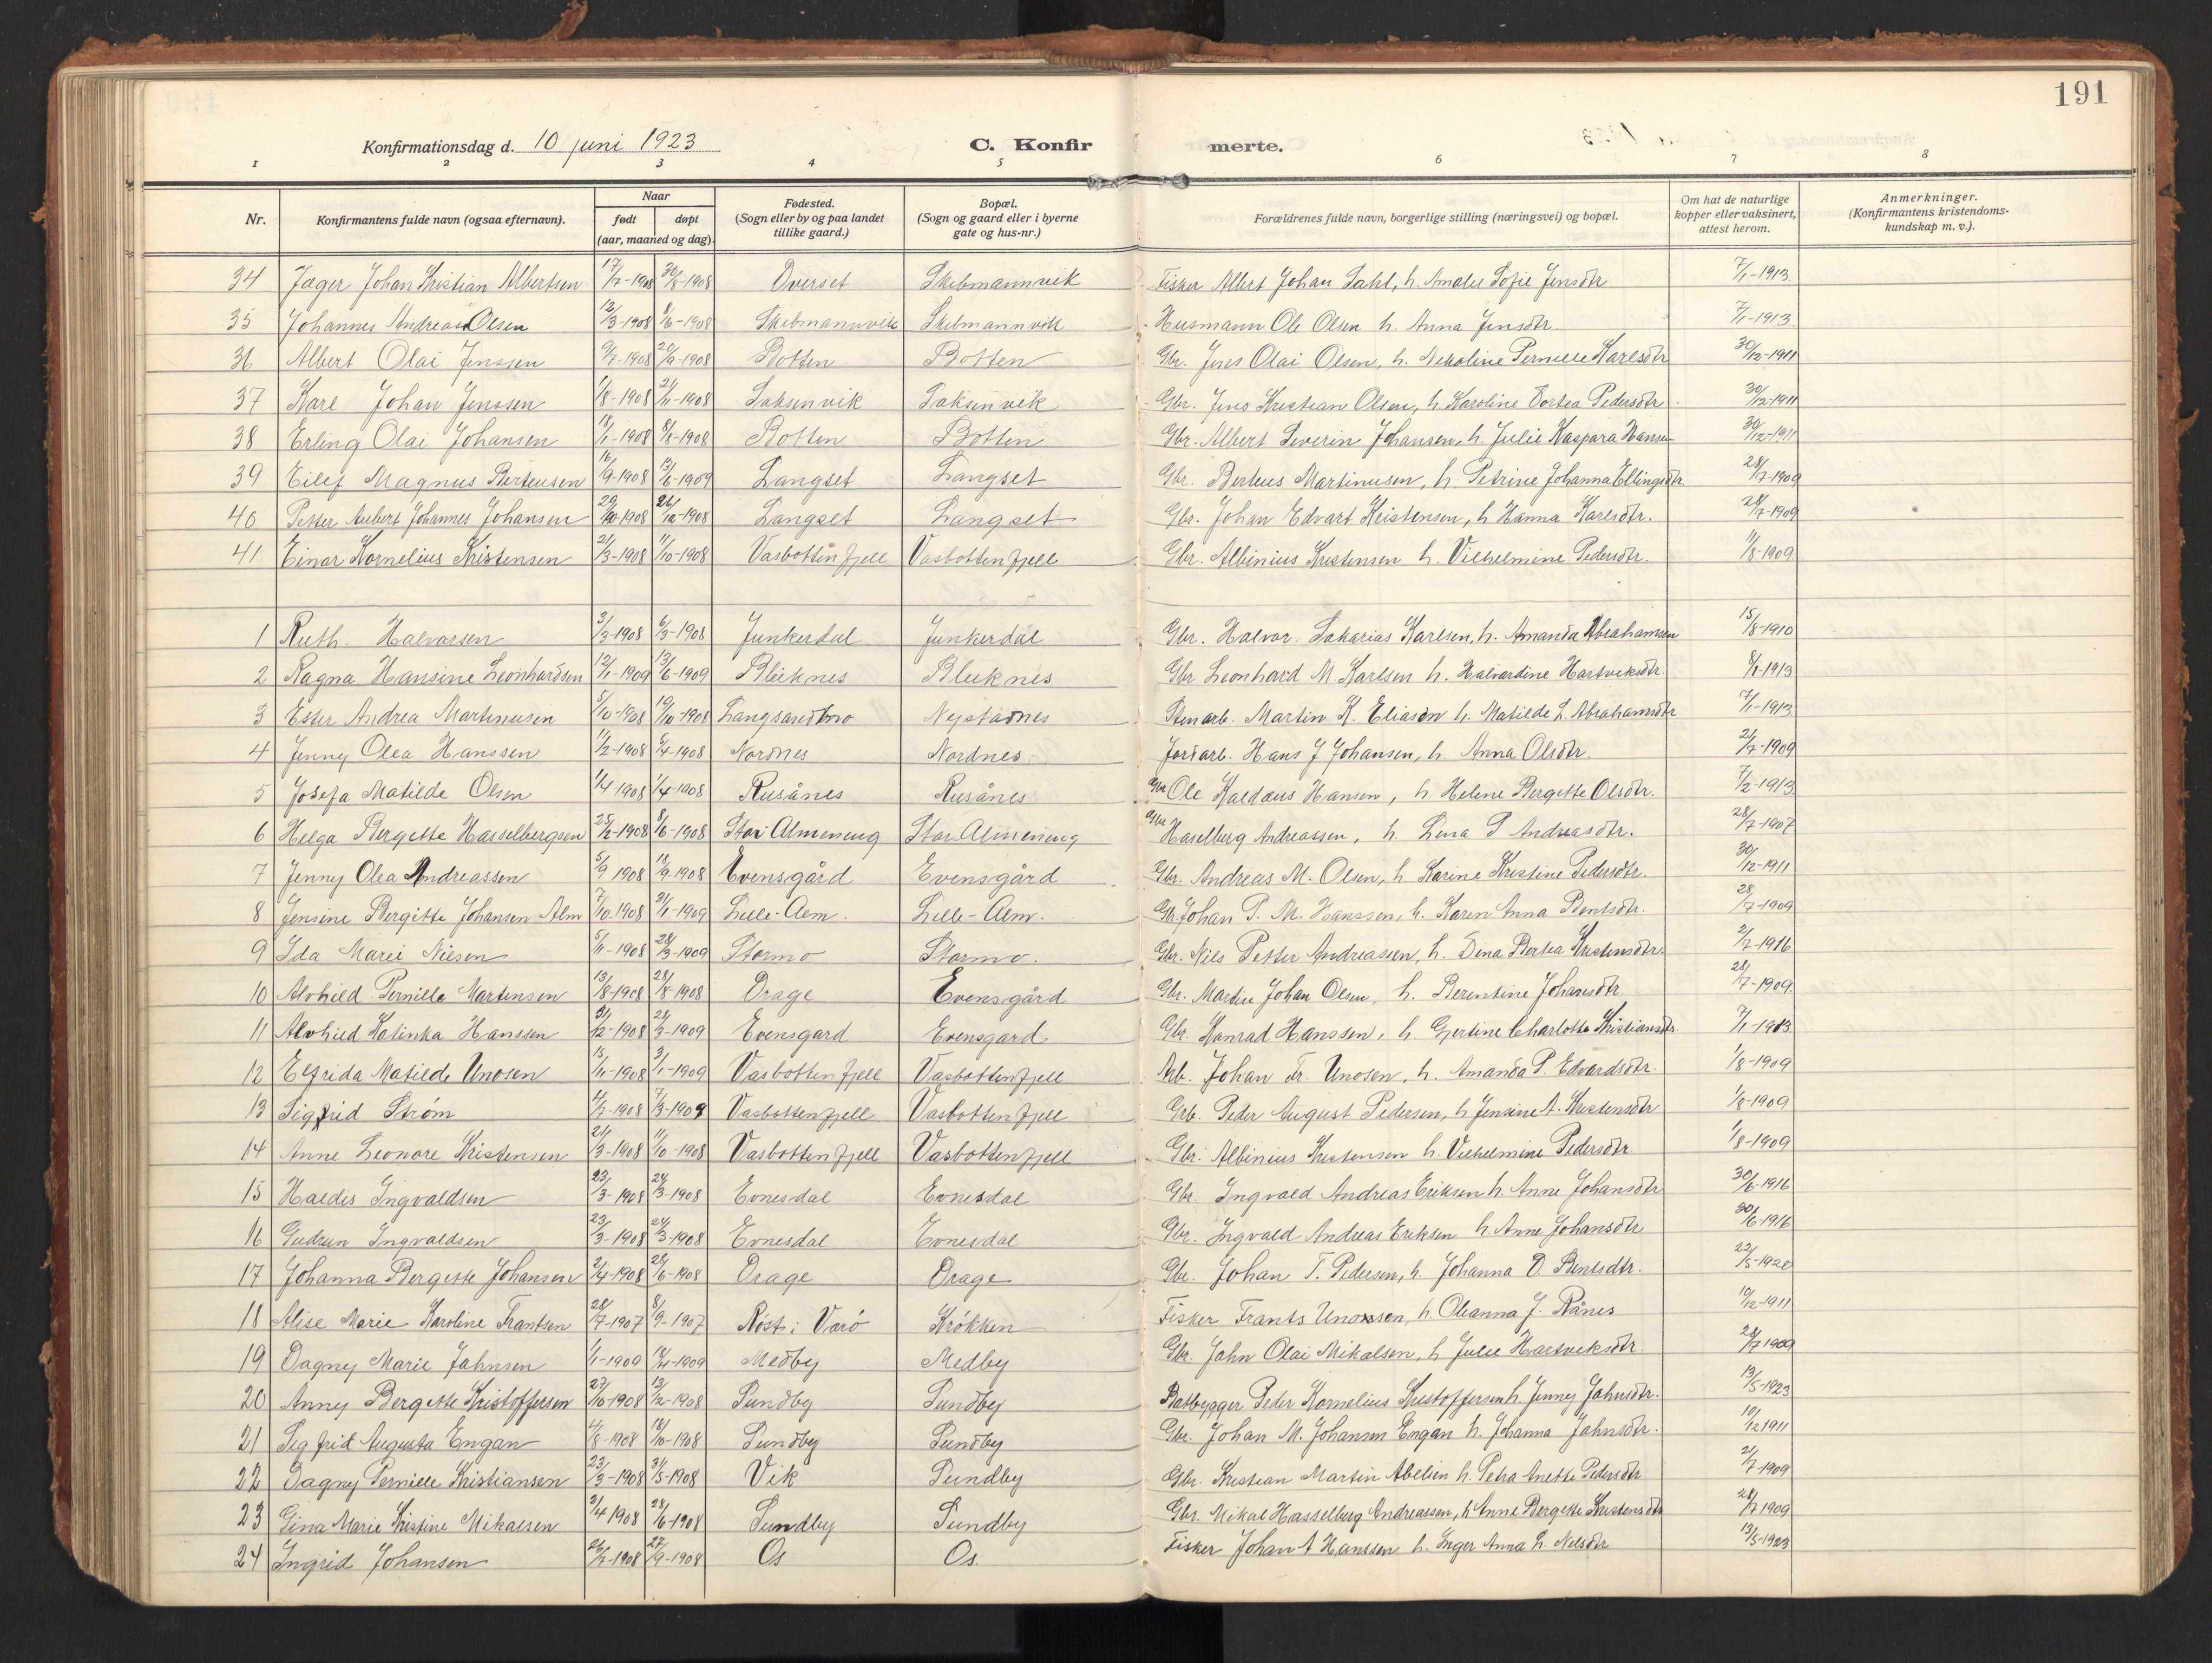 191
Konfirmationsdag d. 10 juni 1923 C. Konfirmerte.
1 2 3 4 5 6 7 8
Nr. Konfirmantens fulde navn (ogsaa efternavn). Naar født døpt (aar, maaned og dag). Fødested. (Sogn eller by og paa landet tillike gaard.) Bopæl. (Sogn og gaard eller i byerne gate og hus-nr.) Forældrenes fulde navn, borgerlige stilling (næringsvei) og bopæl. Om hat de naturlige kopper eller vaksinert, attest herom. Anmerkninger. (Konfirmantens kristendoms-kundskap m. v.).
34 Jæger Johan Kristian Albertsen 17/7-1908 30/8-1908 Överset Skebmannvik Fisker Albert Johan Dahl, h. Amalie Sofie Jensdtr 7/1-1913
35 Johannes Andreas Olsen 12/3-1908 8/6-1908 Skebmannvik Skebmannvik Husmann Ole Olsen h. Anna Jensdtr. 7/1-1913
36 Albert Olai Jenssen 9/7-1908 20/9-1908 Botten Botten Gbr. Jens Olai Olsen, h. Nekoline Pernille Karlsdtr 30/12-1911
37 Karl Johan Jenssen 1/8-1908 21/11-1908 Saksenvik Saksenvik Gbr. Jens Kristian Olsen, h. Karoline Dortea Pedersdtr 30/12-1911
38 Erling Olai Johansen 1908 8/8-1908 Botten Botten Gbr. Albert Severin Johansen, h. Julie Kaspara Hansen 30/12-1911
39 Eilef Magnus Berteusen 16/9-1908 13/6-1909 Langset Langset Gbr. Berteus Martinusen, h. Petrine Johanna Ellingsdtr 28/7-1909
40 Petter Aubert Johannes Johansen 29/10-1908 26/12-1908 Langset Langset Gbr. Johan Edvart Kristensen, h. Hanna Karlsdtr. 28/7-1909
41 Einar Kornelius Kristensen 21/3-1908 11/10-1908 Vasbottenfjell Vasbottenfjell Gbr. Albinius Kristensen h. Vilhelmine Pedersdtr. 11/8-1909
1 Ruth Halvorsen 3/3-1908 6/3-1908 Junkerdal Junkerdal Gbr. Halvor Sakarias Karlsen, h. Amanda Abrahamsen 15/8-1910
2 Ragna Hansine Leonhardsen 12/1-1909 13/6-1909 Bleiknes Bleiknes Gbr Leonhard M. Karlsen h. Halvardine Hartviksdtr. 8/1-1913
3 Ester Andrea Martinusen 5/10-1908 19/10-1908 Langsandmo Nystadnes Stenarb. Martin K. Eliason h. Matilde L. Abrahamsdtr 7/1-1913
4 Jenny Olea Hanssen 11/2-1908 5/4-1908 Nordnes Nordnes Jordarb. Hans J Johansen, h. Anna Olsdtr. 21/7-1909
5 Josefa Matilde Olsen 1/4 1908 1/4-1908 Rusånes Rusånes Gbr Ole Kaldæus Hansen, h. Helene Bergitte Olsdtr. 7/2-1913
6 Helga Bergitte Hasselbergsen 25/2-1908 8/6-1908 Stor Almening Stor Almening Gbr Haselberg Andreassen, h. Lina P Andreasdtr. 28/7-1907
7 Jenny Olea Andreassen 5/9 1908 18/9-1908 Evensgård Evensgård Gbr. Andreas M. Olsen, h. Karine Kristine Pedersdtr. 30/12-1911
8 Jensine Bergitte Johansen Alm 7/10-1908 31/1-1909 Lille-Alm. Lille-Alm. Gb. Johan P. M. Hanssen, h. Karen Anna Bentsdtr. 28/7-1909
9 Ida Marei Nilsen 5/11-1908 28/3-1909 Stormo Stormo. Gbr. Nils Petter Andreassen, h. Dina Bertea Kristensdtr. 2/7-1916
10 Alvhild Pernille Martinsen 13/8-1908 28/8-1908 Drage Evensgård Gbr. Martin Johan Olsen, h. Berentine Johansdtr 28/7-1909
11 Alvhild Katinka Hanssen 31/12-1908 28/3-1909 Evensgard Evensgard Gbr. Konrad Hanssen, h. Gjertine Charlotte Kristiansdtr. 7/1-1913
12 Elfrida Matilde Unosen 15/11-1908 3/1-1909 Vasbottenfjell Vasbottenfjell Arb. Johan Fr. Unosen, h. Amanda P. Edvardsdtr. 1/8-1909
13 Sigfrid Strøm 4/2-1908 7/3-1908 Vasbottenfjell Vasbottenfjell Grb. Peder August Pedersen, h. Jensine A. Kristensdtr 1/8-1909
14 Anne Leonore Kristensen 21/3-1908 11/10-1908 Vasbottenfjell Vasbottenfjell Gbr. Albinius Kristensen h. Vilhelmine Pedersdtr 1/8-1909
15 Haldis Ingvaldsen 23/3-1908 24/3-1908 Evnesdal Evnesdal Gbr. Ingvald Andreas Eriksen h. Anne Johansdtr 30/6-1916
16 Gudrun Ingvaldsen 23/3-1908 24/3-1908 Evnesdal Evnesdal Gbr. Ingvald Andreas Eriksen h. Anne Johansdtr 30/6-1916
17 Johanna Bergitte Johansen 2/4-1908 28/6-1908 Drage Drage Gbr. Johan T. Pedersen, h. Johanna D. Bentsdtr. 22/5-1920
18 Alise Marie Karoline Frantsen 28/7-1907 8/9-1907 Røst i Værö Krøkken Fisker Frants Unossen, h. Oleanna J. Rånes 10/12-1911
19 Dagny Marie Jahnsen 1/1-1909 18/4-1909 Medby Medby Gbr. Jahn Olai Mikalsen, h. Julie Hartveksdtr. 28/7 1909
20 Anny Bergitte Kristoffersen 27/10-1908 13/12-1908 Sundby Sundby Baatbygger Peder Kornelius Kristoffersen h. Jenny Jahnsdtr. 13/5-1923
21 Sigfrid Augusta Engan 4/8-1908 18/10-1908 Sundby Sundby Gbr. Johan M. Johansen Engan h. Johanna Jahnsdtr. 10/12 1911
22 Dagny Pernille Kristiansen 23/3-1908 31/5-1908 Vik Sundby Gbr. Kristian Martin Abelsen h. Petra Anette Pedersdtr 21/7-1909
23 Gina Marie Kristine Mikalsen 3/4 1908 28/6-1908 Sundby Sundby Gbr. Mikal Hasselberg Andreassen, h. Anne Bergitte Kristensdtr 28/7 1909
24 Ingrid Johansen 26/7-1908 27/9-1908 Os Os. Fisker Johan A Hanssen h. Inger Anna L. Nelsdtr 13/5-1923